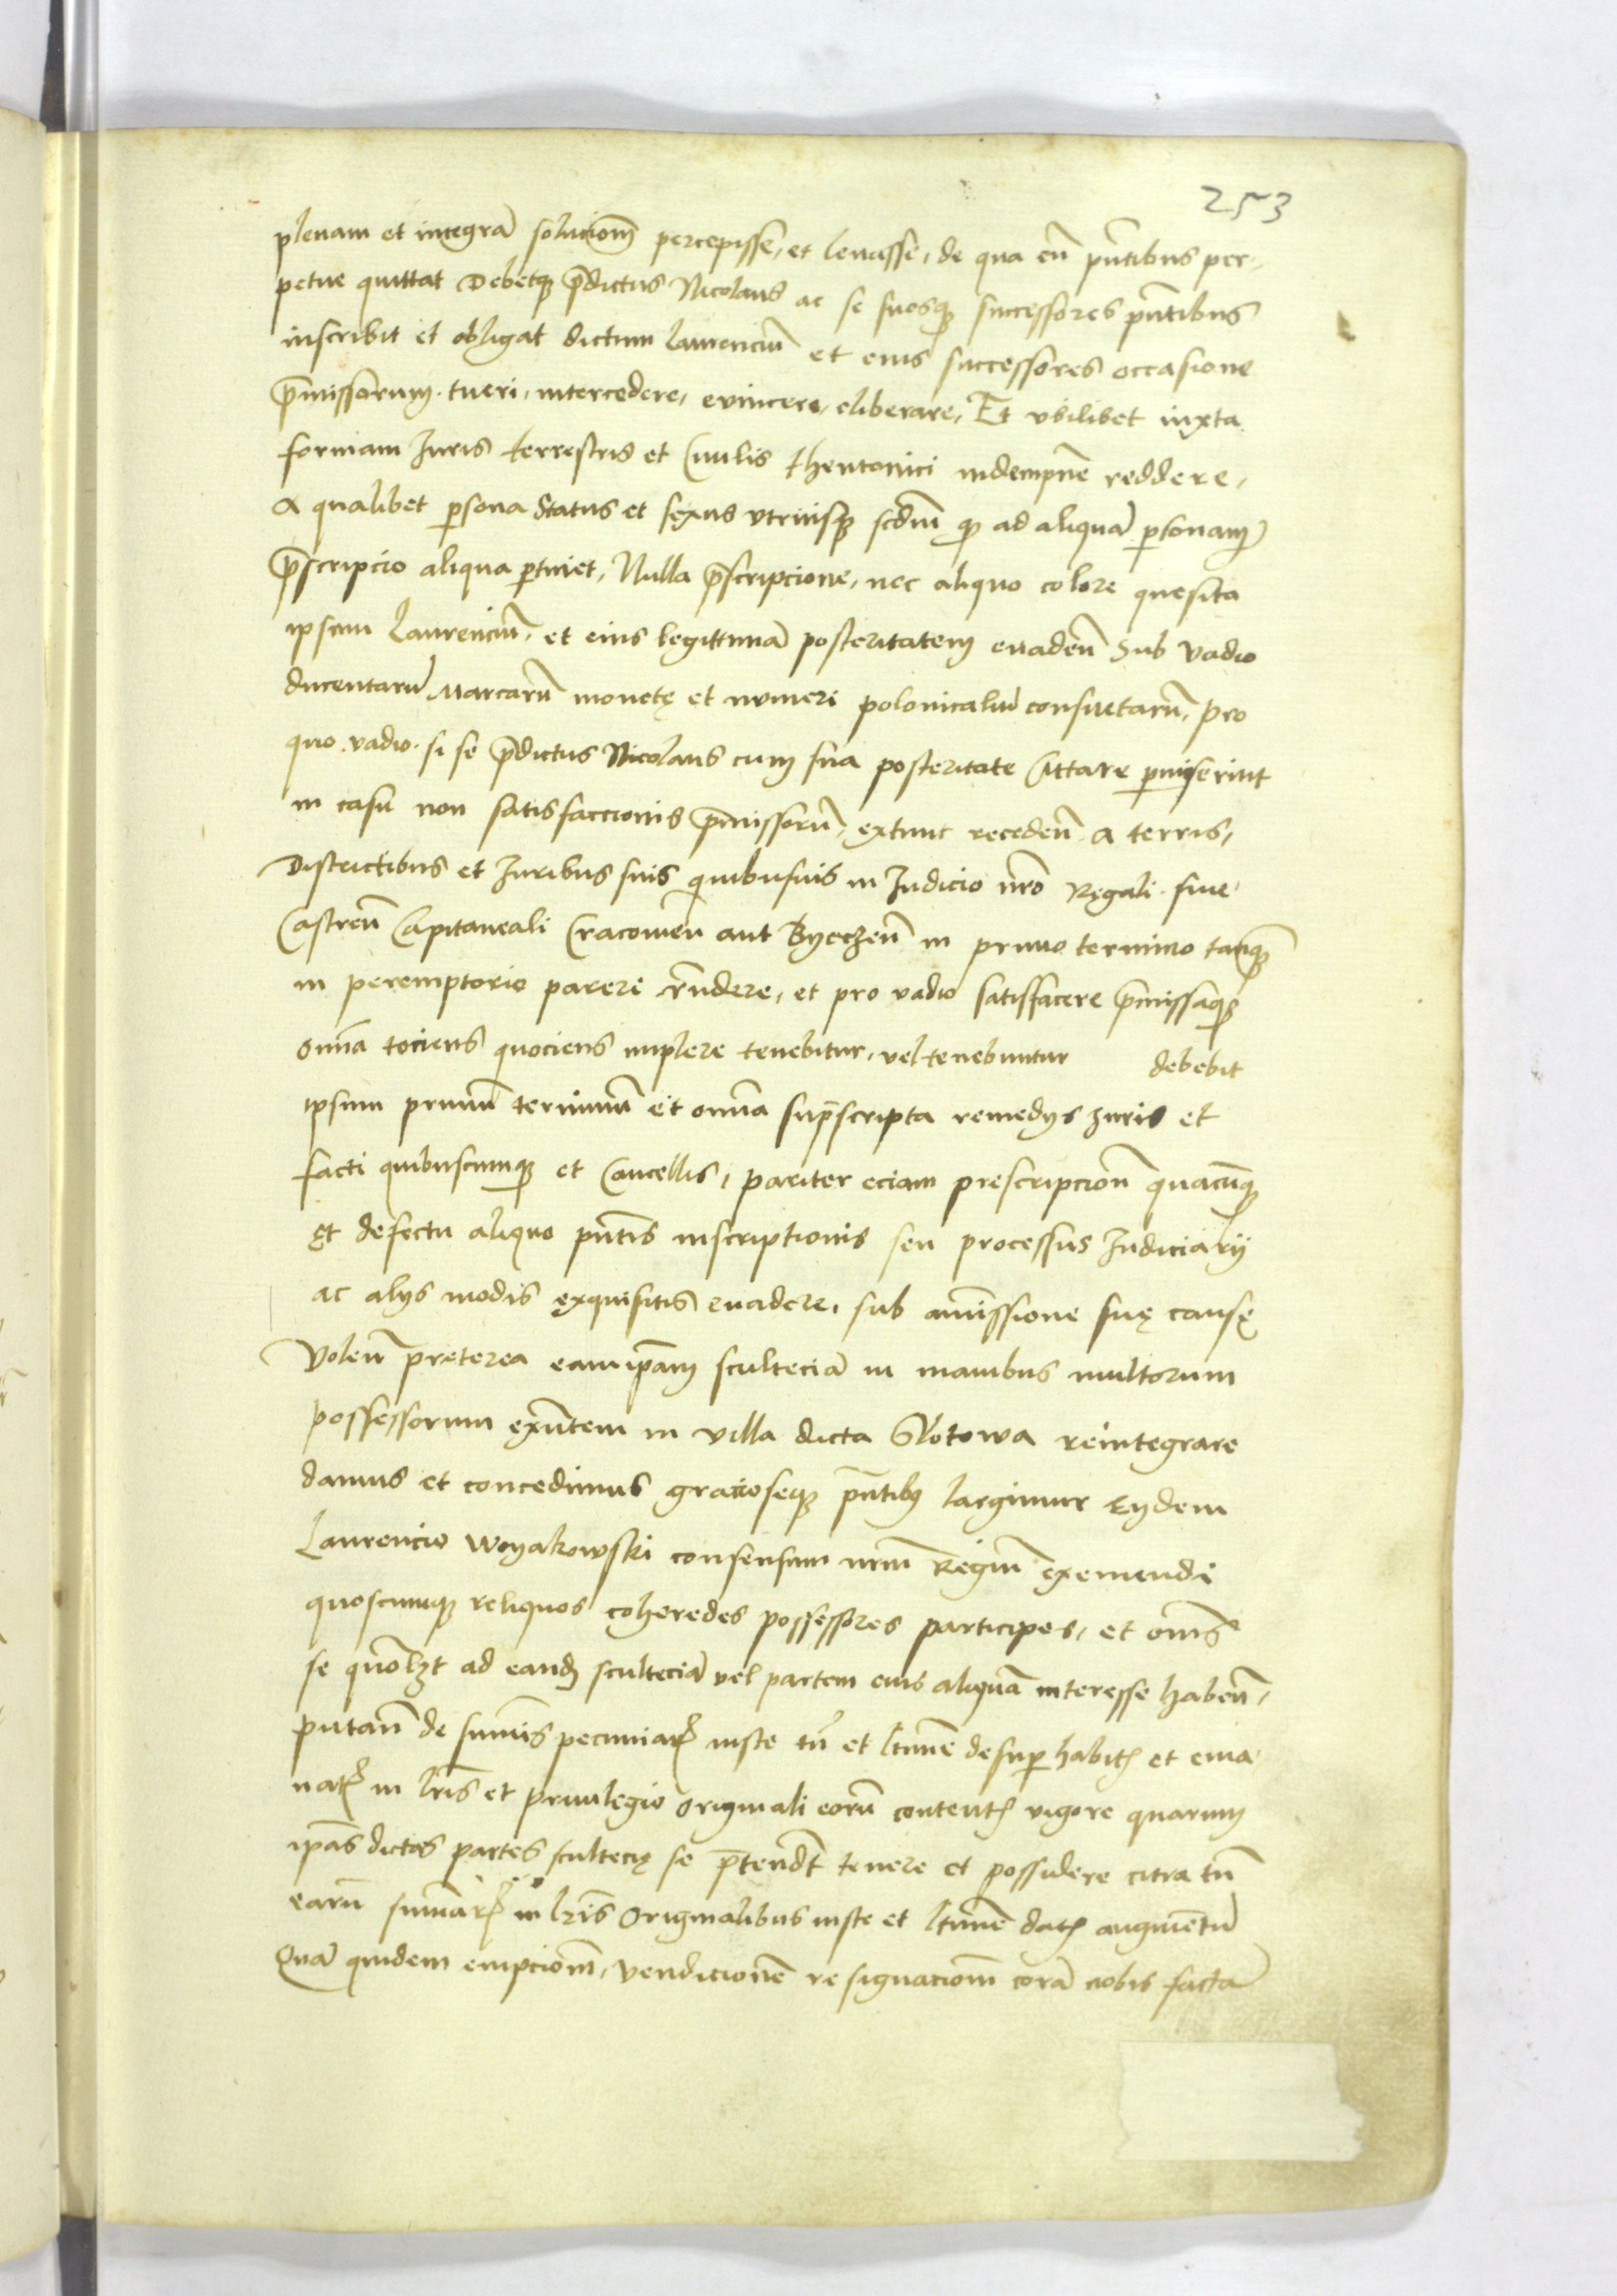 253
plenam et integrã solucioñem percepisse, et leuasse, de qua eũ pñtibus per-
petue quittat Debetq̃ p̃dictus Nicolaus ac se suosq̃ successores pñtibus
inscribit et obligat dictum laurenciũ et eius successores occasione
p̃missorum tueri, intercedere, evincere, eliberare, Et vbilibet iuxta
formam Iuris terrestris et Ciuilis theutonici indempnẽ reddere,
A qualibet p̱sona Status et sexus vtriusq̃ scdm̃ q̃ ad aliquã p̱sonam
p̃scripcio aliqua p̱tinet, Nulla p̃scripcione, nec aliquo colore quesita
ipsum Laurenciũ, et eius legittimã posteritatem euadeñ Sub vadio
ducentarũ Marcarũ monetę et numeri polonicaliũ consuetarũ, pro
quo vadio si se p̃dictus Nicolaus cum sua posteritate Cittare p̱miserint
in casu non satisfaccionis p̃missorũ, extunc recedeñ a terris,
Districtibus et Iuribus suis quibusuis in Iudicio nr̃o Regali siue
Castreñ Capitaneali Cracouieñ aut Byeczeñ in primo termino tanq̃
in peremptorio parere rñdere, et pro vadio satisfacere p̃missaq̃
om̃ia tociens quociens implere tenebitur, vel tenebuntur debebit
ipsum primũ terminũ et om̃ia sup̃scripta remedys Iuris et
facti quibuscumq̃ et Cancellis, pariter eciam prescripcioñ quacũq̃
Et defectu aliquo pñtis inscriptionis seu processus Iudiciarÿ
ac alys modis exquisitis euadere, sub amissione suę causę
Voleñ preterea eam ip̃am sculteciã in manibus multorum
possessorum exñtem in villa dicta Slotowa reintegrare
damus et concedimus grãcioseq̃ pñtibus largimur Eydem
Laurencio Woyakowski consensum nr̃m Regiũ exemendi
quoscumq̃ reliquos coheredes possessores participes, et om̃s
se quõlzt ad eandẽ scultecia vel partem eius aliquã interesse habeñ,
putañ de sum̃is pecuniaꝝ iuste tñ et ltimẽ desup̱ habitꝭ et ema-
natꝭ in lr̃is et priuilegio originali eorũ contentꝭ vigore quarum
ip̃as dictas partes scultecię se p̃tendt tenere et possidere citra tñ
earũ sum̃aꝝ in lr̃is Originalibus iuste et ltimẽ datꝭ augmentũ
Quã quidem empcioñem, vendicionẽ resignacioñem corã nobis factã